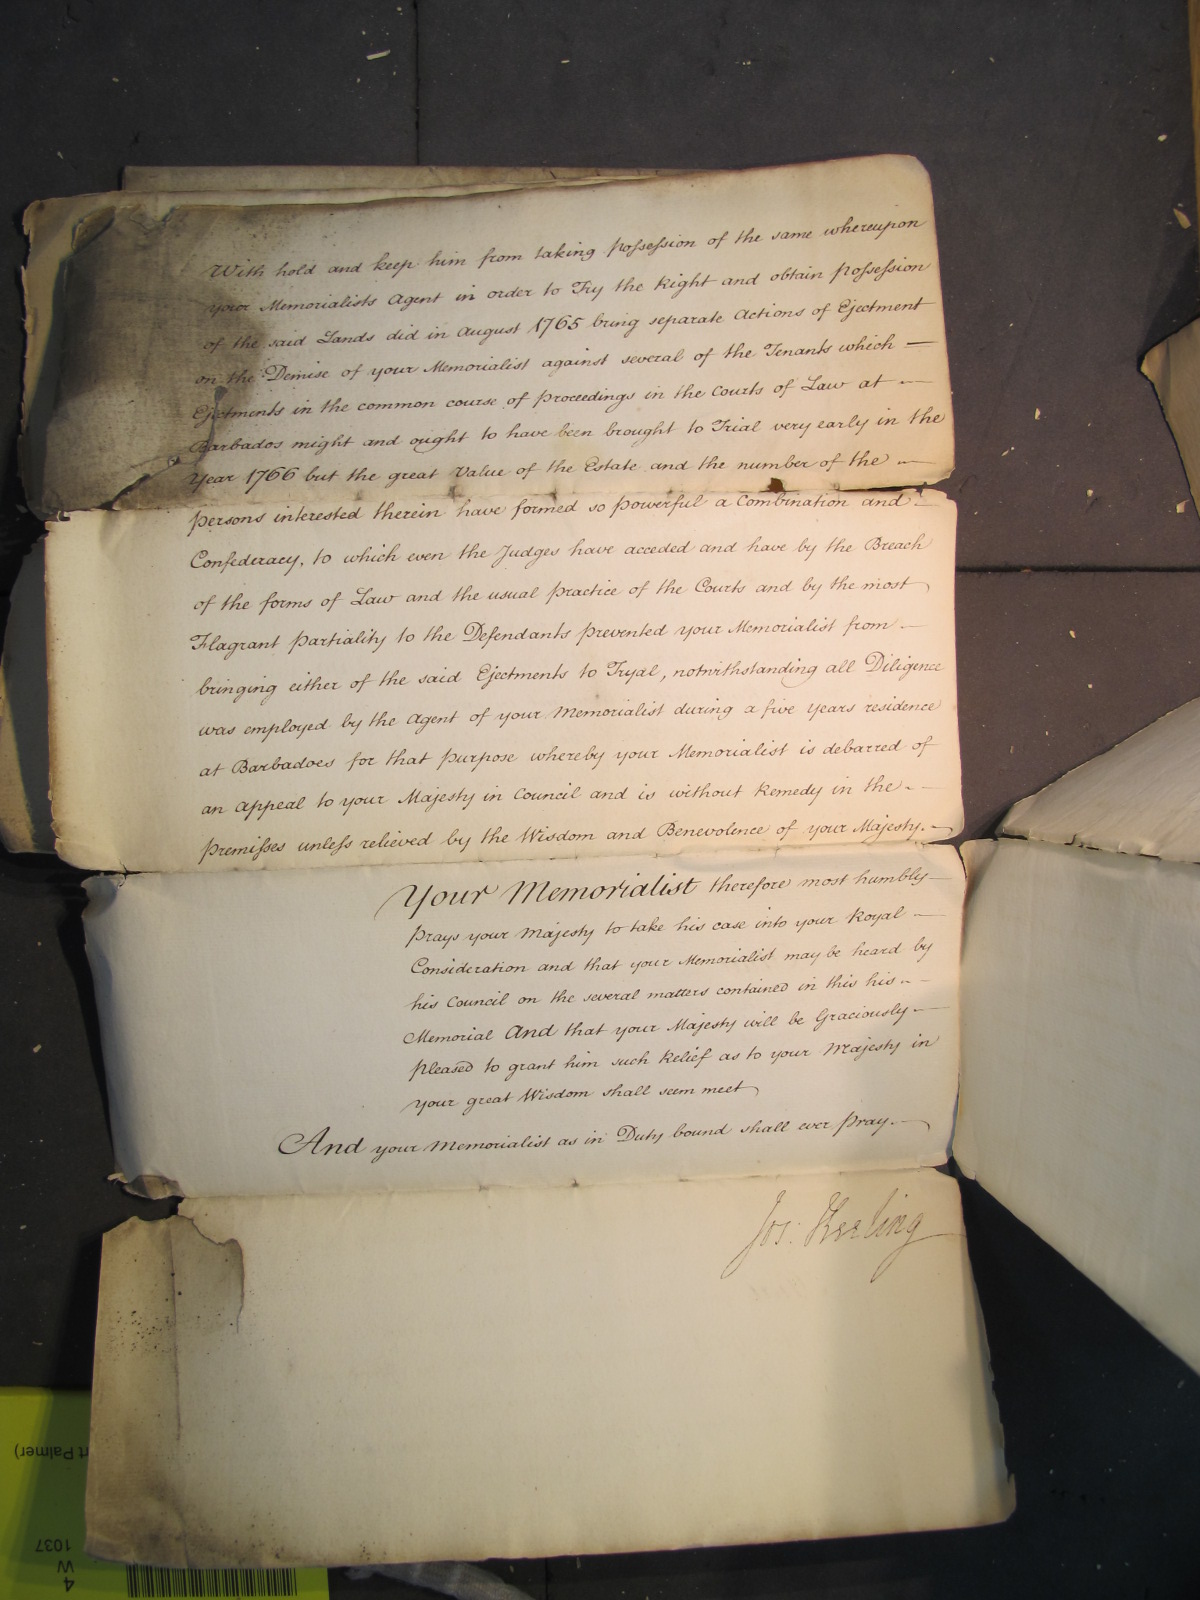 With hold and keep him from taking possession of the same whereupon
your Memorialists Agent in order to Try the Right and obtain possession
of the said Lands did in August 1765 bring separate Actions of Ejectment
on the Demise of your Memorialist against several of the Tenants which —
Ejectments in the common course of proceedings in the Courts of Law at —
Barbados might and ought to have been brought to Trial very early in the
Year 1766 but the great Value of the Estate and the number of the —
persons interested therein have formed so powerful a Combination and —
Confederacy, to which even the Judges have acceded and have by the Breach
of the forms of Law and the usual practice of the Courts and by the most
Flagrant partiality to the Defendants prevented your Memorialist from —
bringing either of the said Ejectments to Tryal, notwithstanding all Diligence
was employed by the Agent of your Memorialist during a five years residence
at Barbadoes for that purpose whereby your Memorialist is debarred of
an appeal to your Majesty in Council and is without Remedy in the —
premisses unless relieved by the Wisdom and Benevolence of your Majesty. —
Your Memorialist therefore most humbly —
prays your Majesty to take his case into your Royal —
Consideration and that your Memorialist may be heard by
his Council on the several matters contained in this his —
Memorial And that your Majesty will be Graciously —
pleased to grant him such Relief as to your Majesty in
your great Wisdom shall seem meet
And your Memorialist as in Duty bound shall ever pray. —
Jos: Keeling
rt Palmer)
1037
W
4